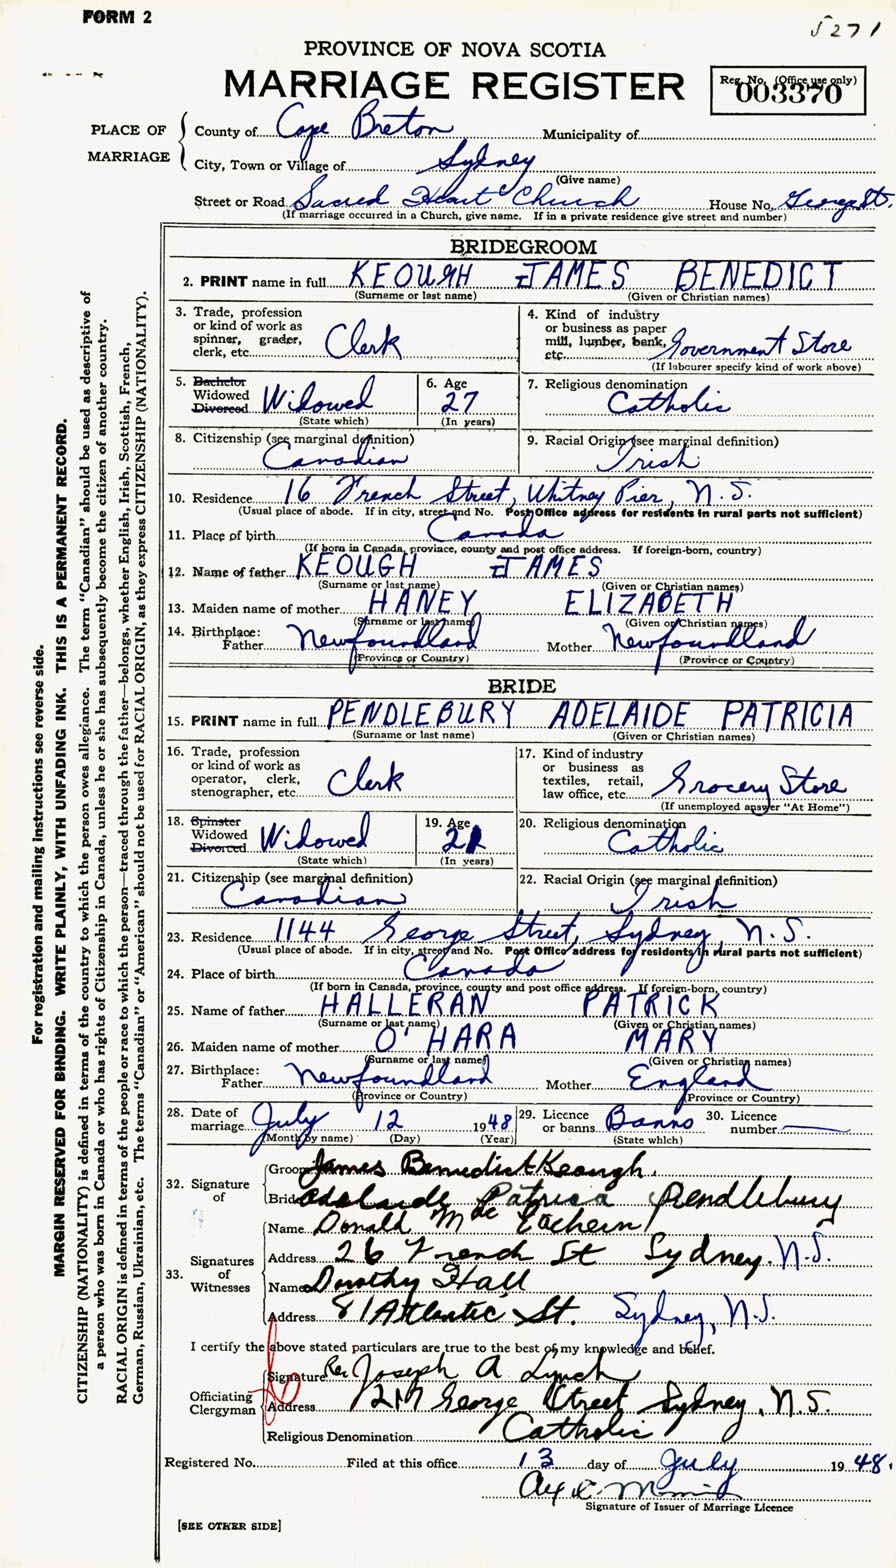 FORM 2
5271
PROVINCE OF NOVA SCOTIA
MARRIAGE REGISTER
Reg. No. (Office use only)
003370
PLACE OF MARRIAGE
County of Cape Breton Municipality of
City, Town or Village of Sydney
(Give name)
Street or Road Sacred Heart Church House No. George St.
(If marriage occurred in a Church, give name. If in a private residence give street and number)
BRIDEGROOM
2. PRINT name in full KEOUGH JAMES BENEDICT
(Surname or last name) (Given or Christian names)
3. Trade, profession or kind of work as spinner, grader, clerk, etc. Clerk
4. Kind of industry or business as paper mill, lumber, bank, etc. Government Store
(If labourer specify kind of work above)
5. Bachelor Widowed Divorced Widowed
(State which)
6. Age 27
(In years)
7. Religious denomination Catholic
8. Citizenship (see marginal definition) Canadian
9. Racial Origin (see marginal definition) Irish
10. Residence 16 French Street, Whitney Pier, N.S.
(Usual place of abode. If in city, street and No. Post Office address for residents in rural parts not sufficient)
11. Place of birth Canada
(If born in Canada, province, county and post office address. If foreign-born, country)
12. Name of father KEOUGH JAMES
(Surname or last name) (Given or Christian names)
13. Maiden name of mother HANEY ELIZABETH
(Surname or last name) (Given or Christian names)
14. Birthplace: Father Newfoundland Mother Newfoundland
(Province or Country) (Province or Country)
BRIDE
15. PRINT name in full PENDLEBURY ADELAIDE PATRICIA
(Surname or last name) (Given or Christian names)
16. Trade, profession or kind of work as operator, clerk, stenographer, etc. Clerk
17. Kind of industry or business as textiles, retail, law office, etc. Grocery Store
(If unemployed answer "At Home")
18. Spinster Widowed Divorced Widowed
(State which)
19. Age 21
(In years)
20. Religious denomination Catholic
21. Citizenship (see marginal definition) Canadian
22. Racial Origin (see marginal definition) Irish
23. Residence 1144 George Street, Sydney, N.S.
(Usual place of abode. If in city, street and No. Post Office address for residents in rural parts not sufficient)
24. Place of birth Canada
(If born in Canada, province, county and post office address. If foreign-born, country)
25. Name of father HALLERAN PATRICK
(Surname or last name) (Given or Christian names)
26. Maiden name of mother O'HARA MARY
(Surname or last name) (Given or Christian names)
27. Birthplace: Father Newfoundland Mother England
(Province or Country) (Province or Country)
28. Date of marriage July 12 1948
(Month by name) (Day) (Year)
29. Licence or banns Banns
(State which)
30. Licence number
32. Signature of
Groom James Benedict Keough.
Bride Adelaide Patricia Pendlebury
33. Signatures of Witnesses
Name Donald Mac Eachern
Address 26 French St Sydney. N.S.
Name Dorothy Hall
Address 81 Atlantic St. Sydney, N.S.
I certify the above stated particulars are true to the best of my knowledge and belief.
Officiating Clergyman
Signature Rev Joseph A Lynch
Address George Street Sydney, N.S.
Religious Denomination Catholic
Registered No. Filed at this office 13 day of July 1948.
Signature of Issuer of Marriage Licence
[SEE OTHER SIDE]
For registration and mailing instructions see reverse side.
MARGIN RESERVED FOR BINDING. WRITE PLAINLY, WITH UNFADING INK. THIS IS A PERMANENT RECORD.
CITIZENSHIP (NATIONALITY) is defined in terms of the country to which the person owes allegiance. The term "Canadian" should be used as descriptive of
a person who was born in Canada or who has rights of Citizenship in Canada, unless he or she has subsequently become the citizen of another country.
RACIAL ORIGIN is defined in terms of the people or race to which the person—traced through the father—belongs, whether English, Irish, Scottish, French,
German, Russian, Ukrainian, etc. The terms "Canadian" or "American" should not be used for RACIAL ORIGIN, as they express CITIZENSHIP (NATIONALITY).